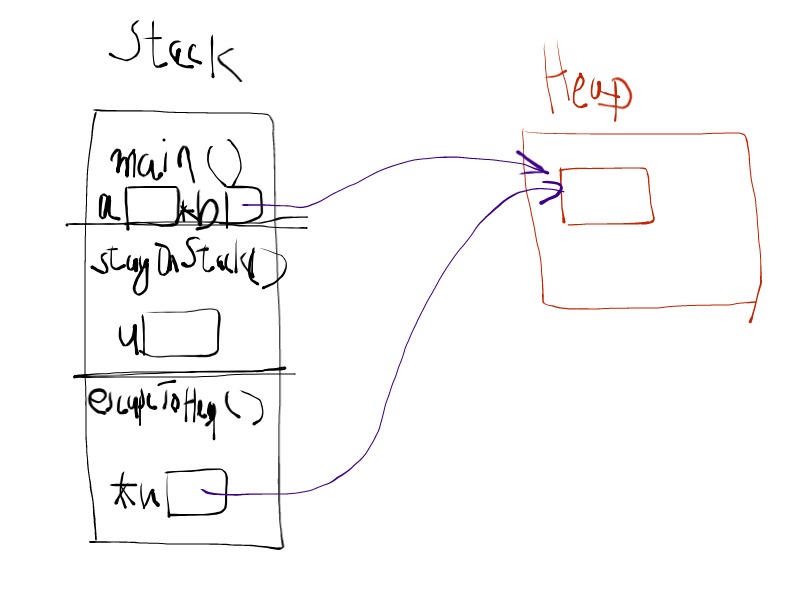 Stack
Heap
main()
a *b
stayOnStack()
u
escapeToHeap()
*u